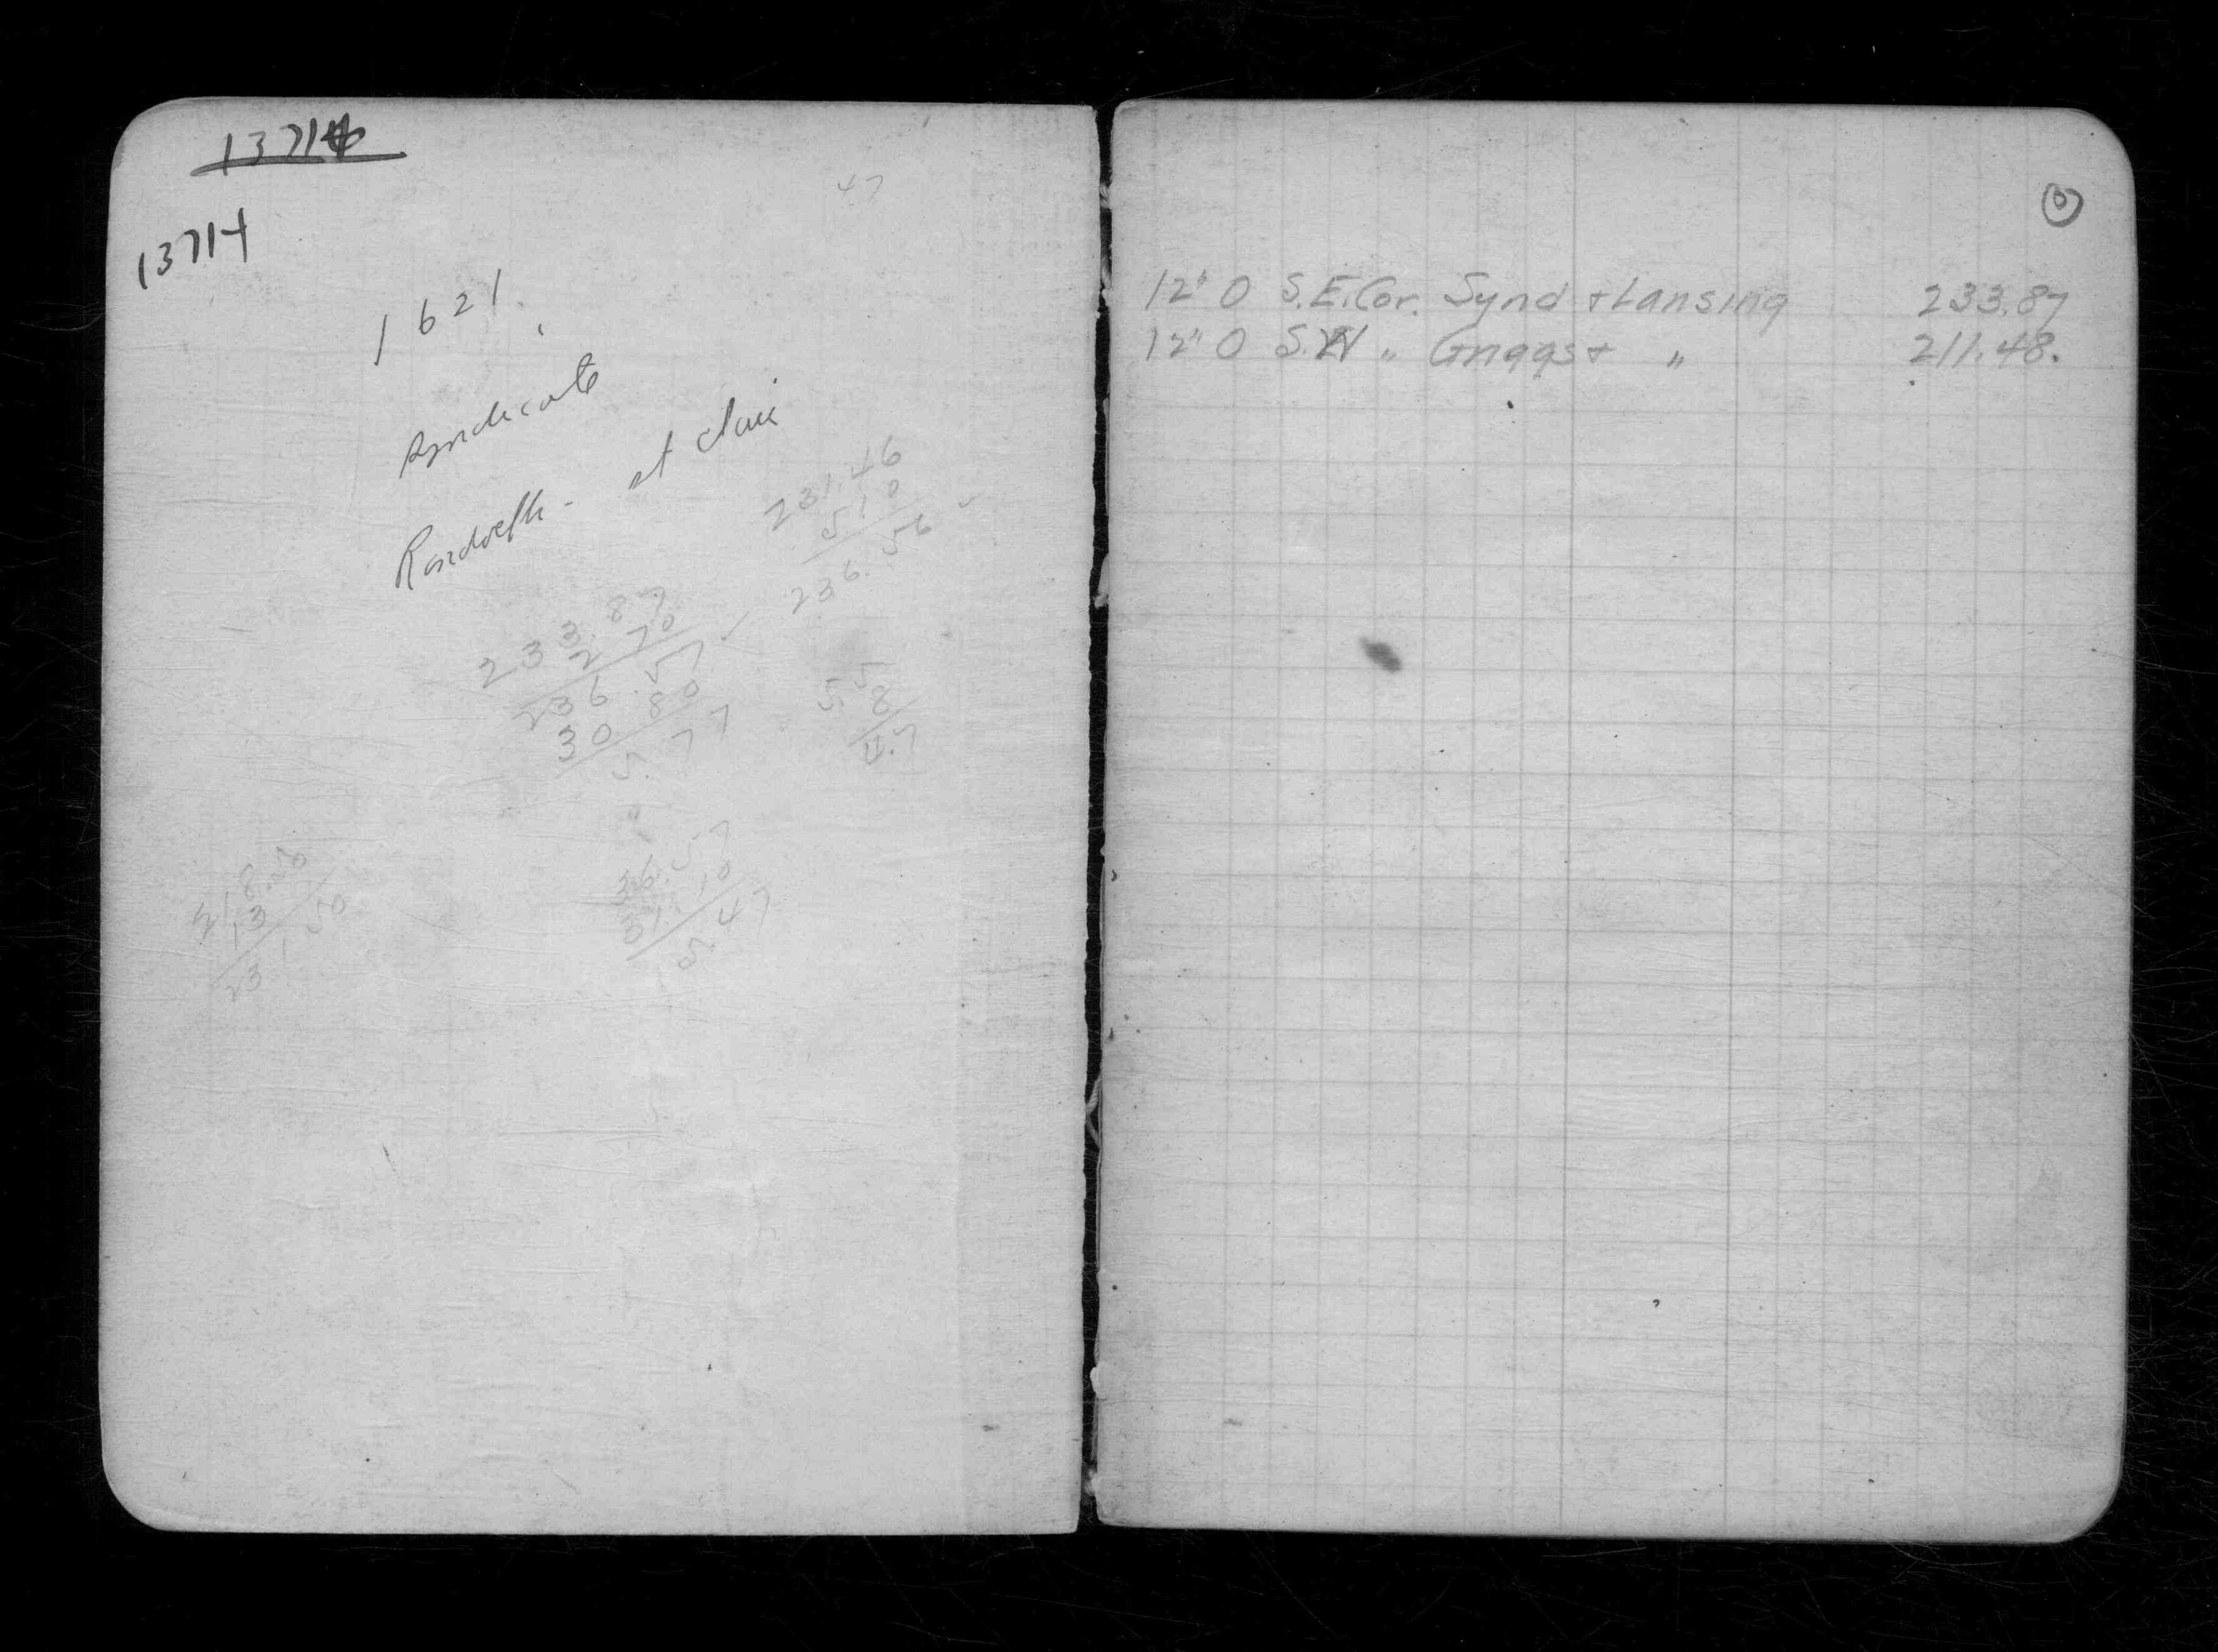 13714
47
13714
1621
Syndicate
Randolph - st clair
231.46
5 10
236.56 ✓
233.87
2 70
236.57 ✓
30 80
5.77
5.5
8
4.7
218.50
13
231 50
36.57
31.10
5.47
12" O S.E. Cor. Synd + Lansing 233.87
12" O S.W " Griggs + " 211.48.